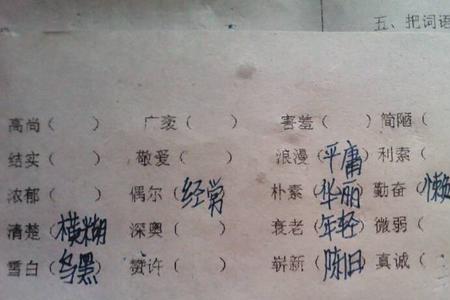 五、把词语
高尚（ ） 广袤（ ） 害羞（ ） 简陋（
结实（ ） 敬爱（ ） 浪漫（平庸） 利索（
浓郁（ ） 偶尔（经常） 朴素（华丽） 勤奋（懒
清楚（模糊） 深奥（ ） 衰老（年轻） 微弱（
雪白（乌黑） 赞许（ ） 崭新（陈旧） 真诚（